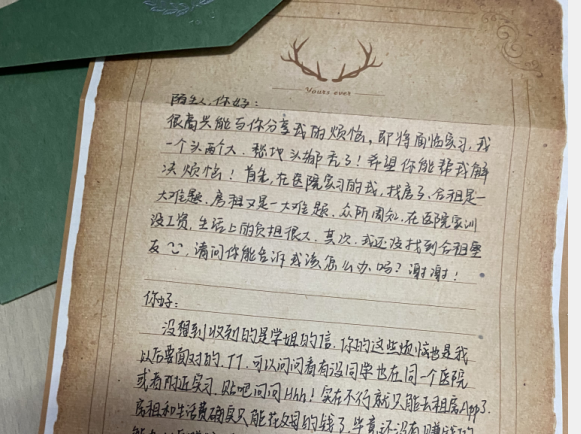 Yours ever
陌生人,你好:
很高兴能与你分享我的烦恼,即将面临实习,我
一个头两个大,愁地头都秃了!希望你能帮我解
决烦恼!首先,在医院实习的我,找房子、合租是一
大难题,房租又是一大难题,众所周知,在医院实训
没工资,生活上的负担很大,其次,我还没找到合租室
友,请问你能告诉我该怎么办吗?谢谢!
你好:
没想到收到的是学姐的信,你的这些烦恼也是我
以后要面对的,TT,可以问问看有没同学也在同一个医院
或者附近实习,贴吧问问Hhh!实在不行就只能去租房App了.
房租和生活费确实只能花父母的钱了,毕竟还没有赚钱的